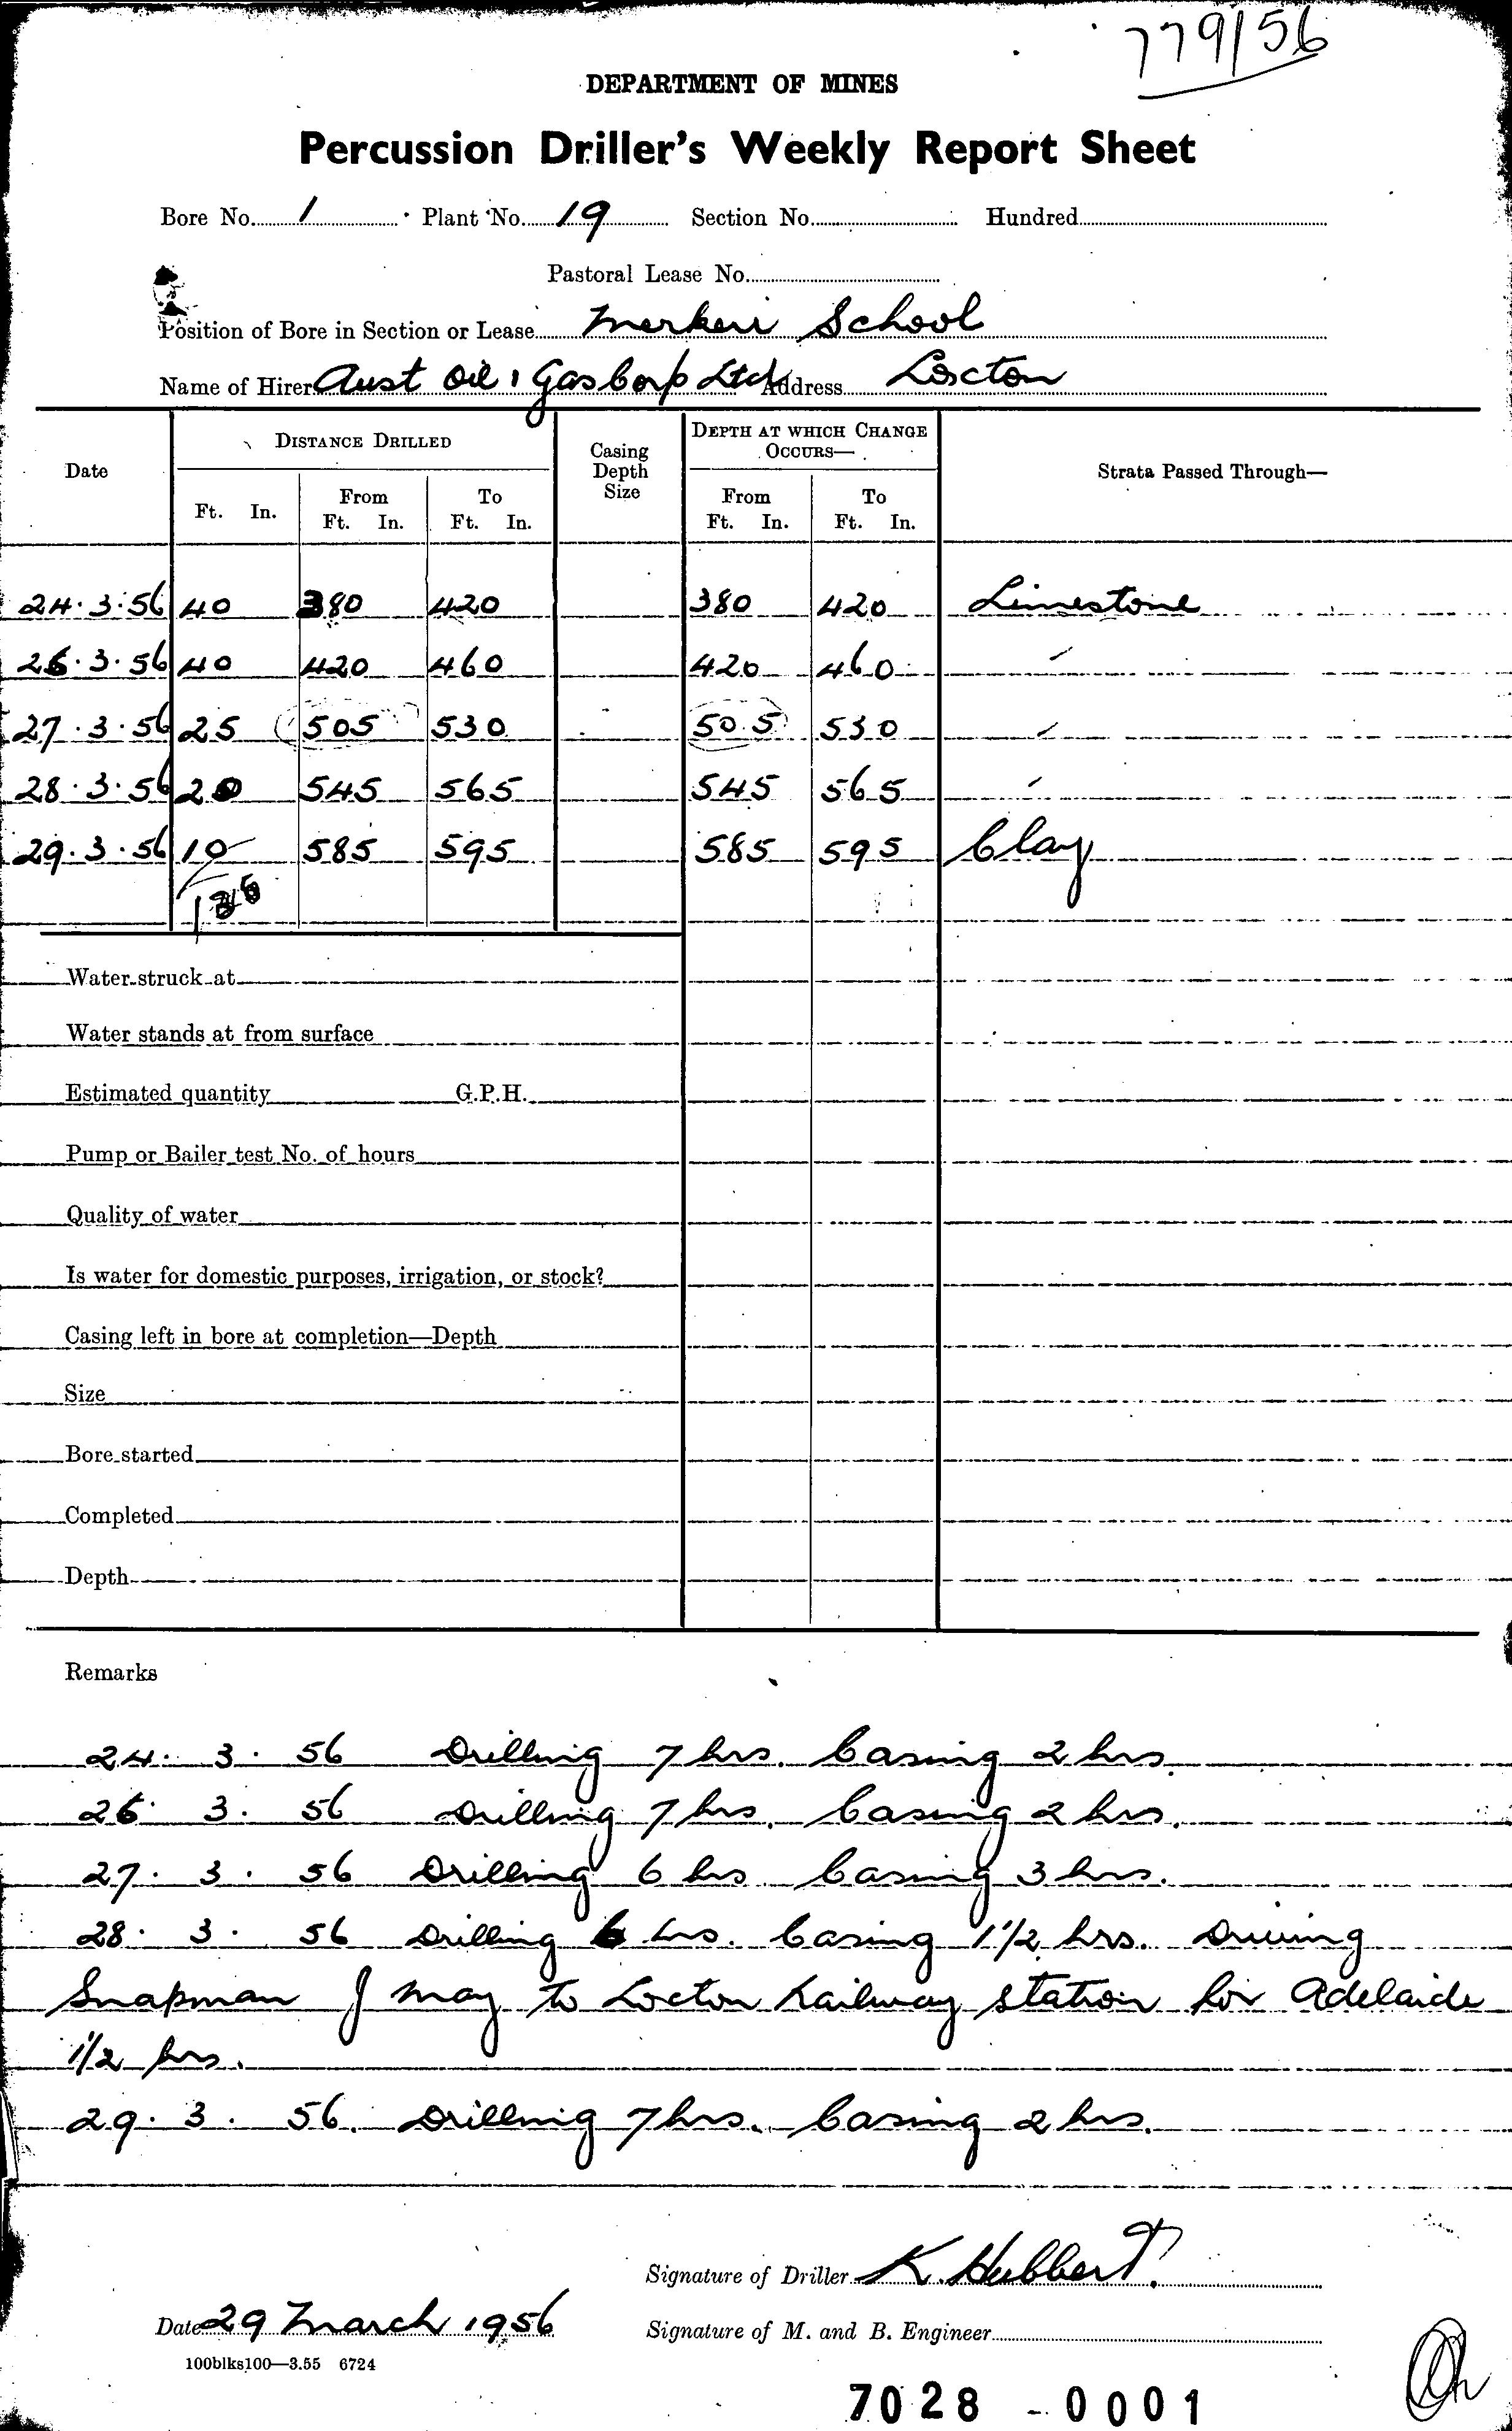 779/56
DEPARTMENT OF MINES
Percussion Driller's Weekly Report Sheet
Bore No. 1 Plant No. 19 Section No. Hundred
Pastoral Lease No.
Position of Bore in Section or Lease School
Name of Hirer Aust Oil & Gas Corp Ltd Address Loxton
Date DISTANCE DRILLED Casing Depth Size DEPTH AT WHICH CHANGE OCCURS— Strata Passed Through—
Ft. In. From Ft. In. To Ft. In. From Ft. In. To Ft. In.
24.3.56 40 380 420 380 420 Limestone
26.3.56 40 420 460 420 460 "
27.3.56 25 505 530 505 530 "
28.3.56 20 545 565 545 565 "
29.3.56 10 585 595 585 595 Clay
Water struck at
Water stands at from surface
Estimated quantity G.P.H.
Pump or Bailer test No. of hours
Quality of water
Is water for domestic purposes, irrigation, or stock?
Casing left in bore at completion—Depth
Size
Bore started
Completed
Depth
Remarks
24. 3. 56 Drilling 7 hrs. Casing 2 hrs.
26. 3. 56 Drilling 7 hrs. Casing 2 hrs.
27. 3. 56 Drilling 6 hrs Casing 3 hrs.
28. 3. 56 Drilling 6 hrs. Casing 1 1/2 hrs. Driving
J May to Loxton Railway station for Adelaide
1 1/2 hrs.
29. 3. 56. Drilling 7 hrs. Casing 2 hrs.
Signature of Driller K. Hubbert.
Date 29 March 1956 Signature of M. and B. Engineer
100blks100—3.55 6724
7028 - 0001